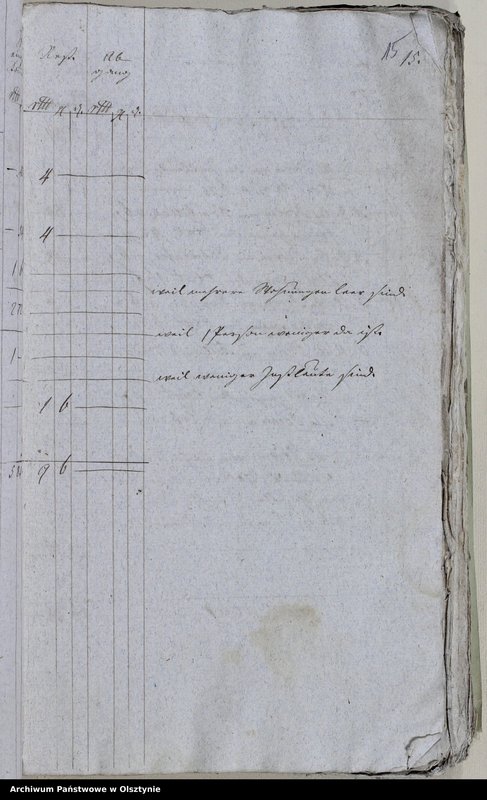 15 15.
Rest. Ab
gang
rthl g d. rthl g d.
4
4
weil mehrere Wohnungen leer sind.
weil 1 Person weniger da ist.
weil weniger Instleute sind.
1 6
9 6
Archiwum Państwowe w Olsztynie